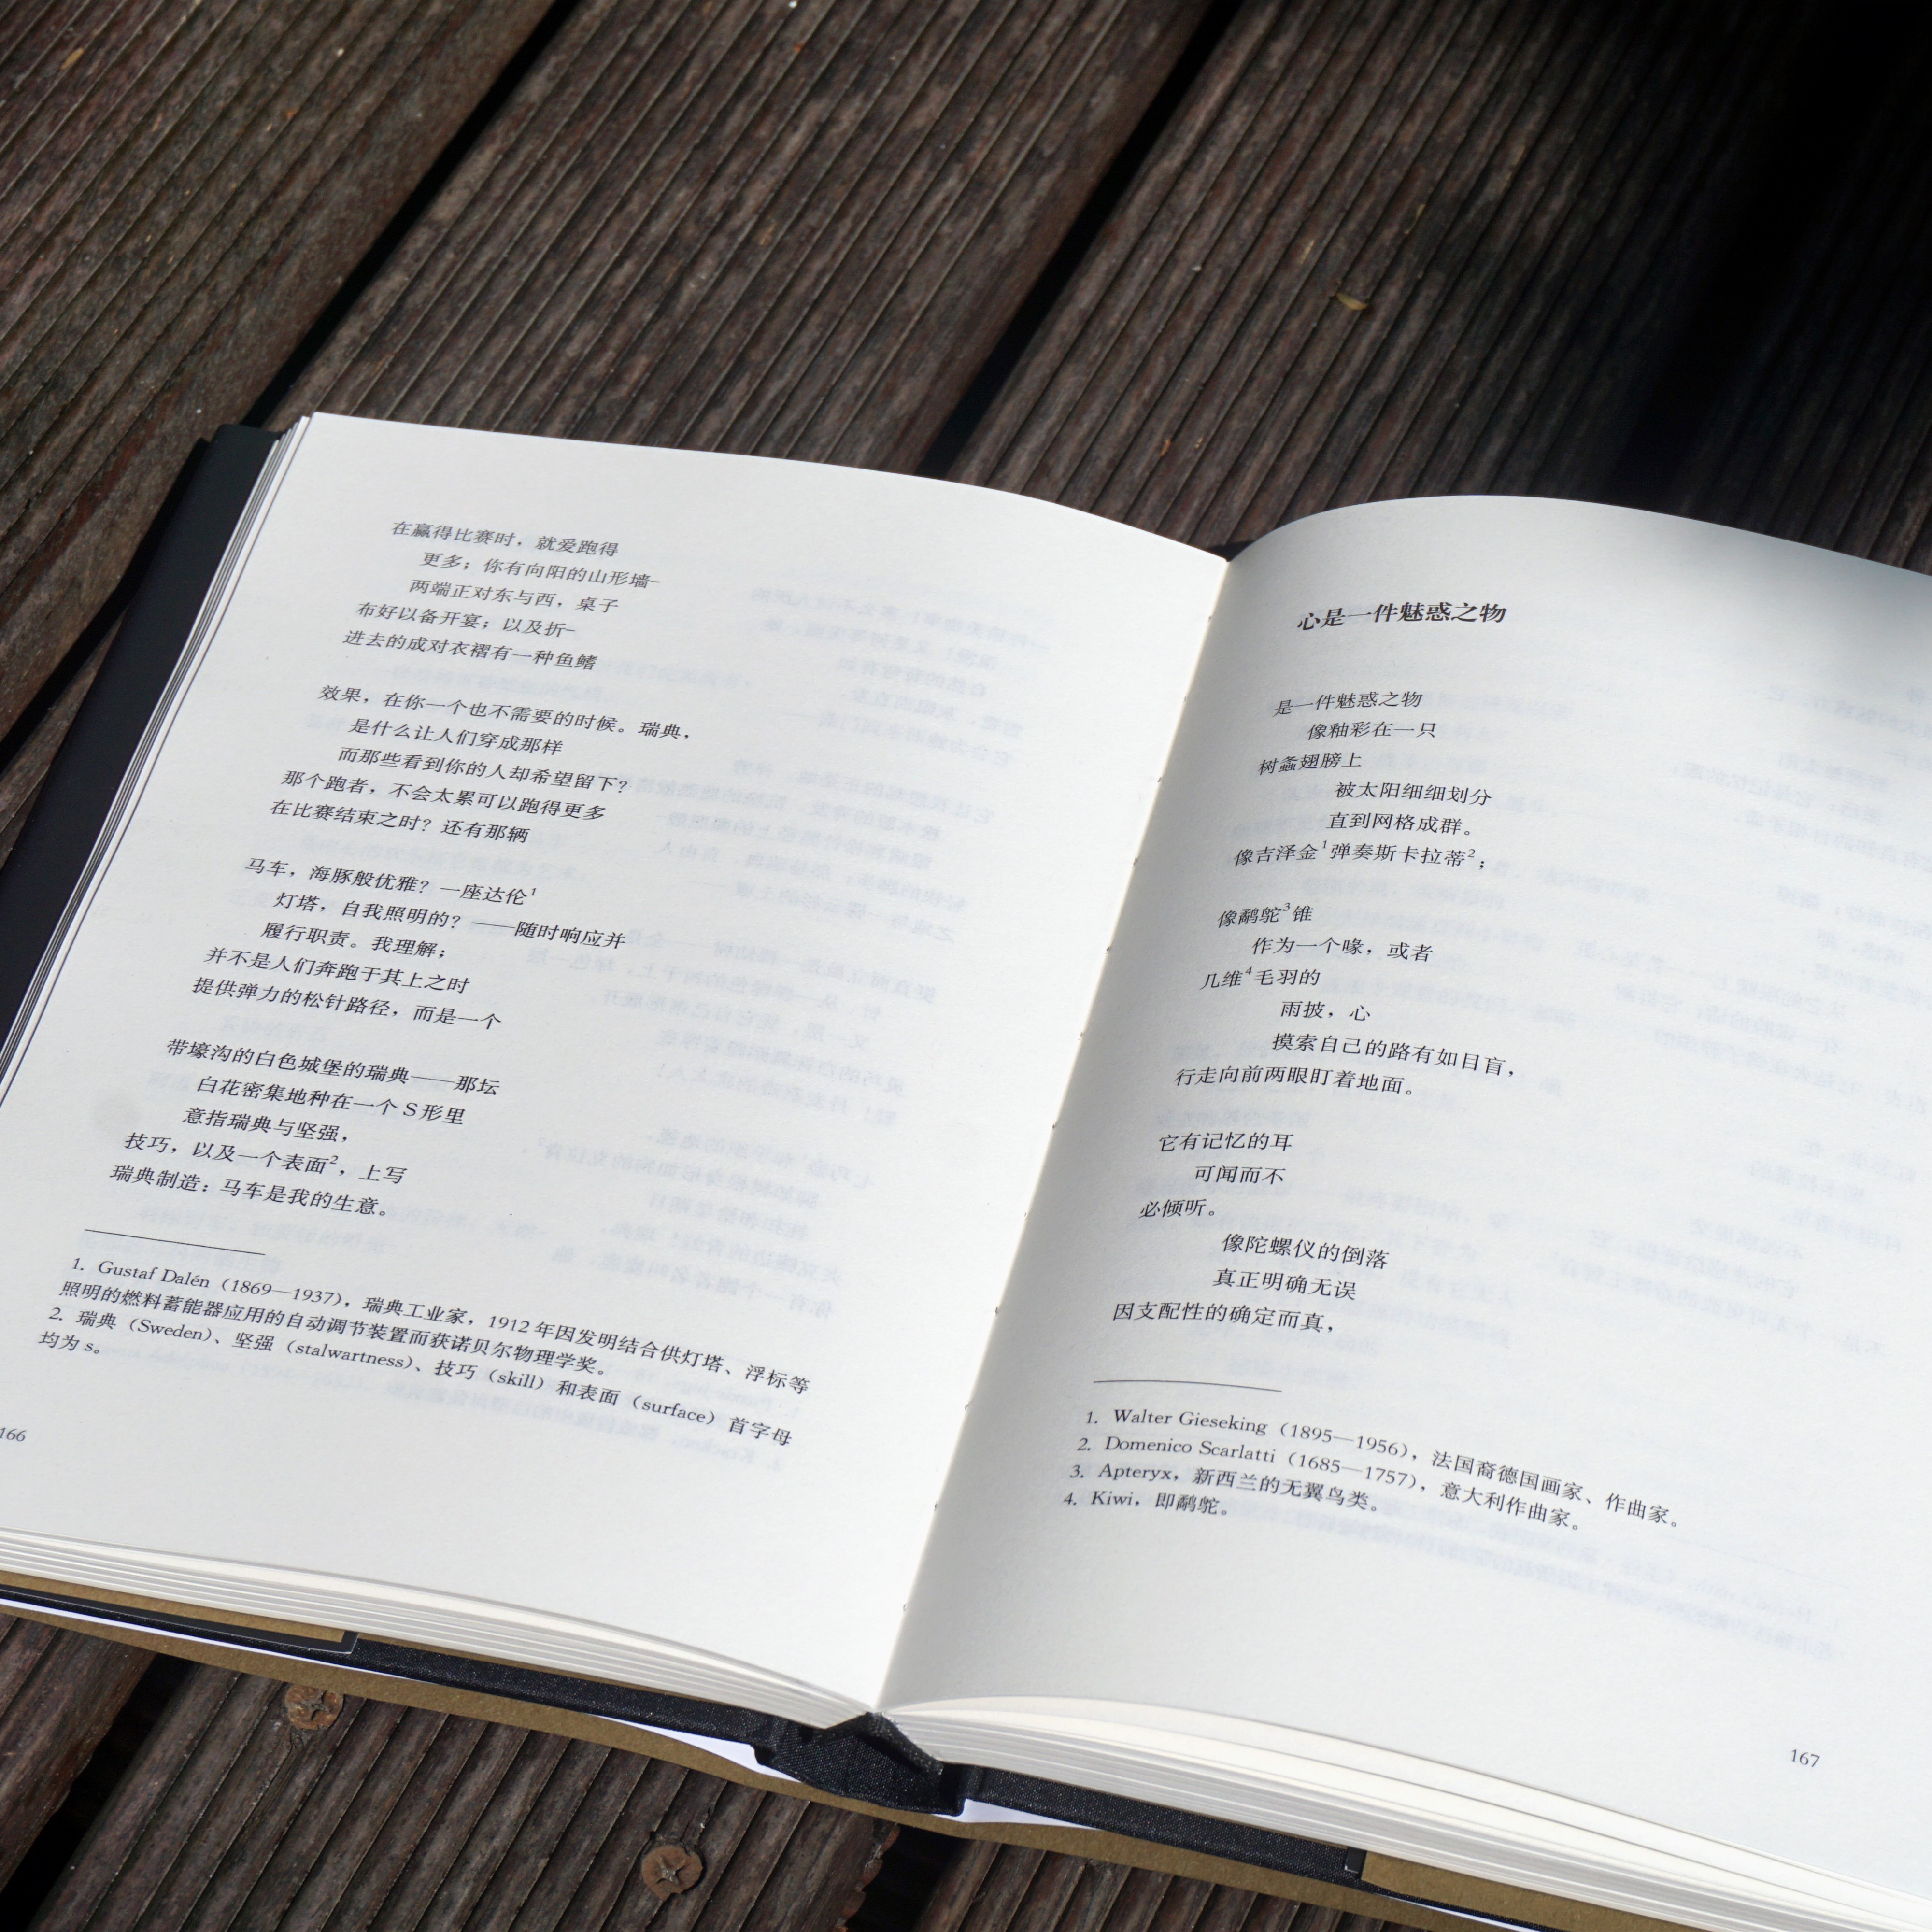 在赢得比赛时，就爱跑得
更多；你有向阳的山形墙–
两端正对东与西，桌子
布好以备开宴；以及折–
进去的成对衣褶有一种鱼鳍
效果，在你一个也不需要的时候。瑞典，
是什么让人们穿成那样
而那些看到你的人却希望留下？
那个跑者，不会太累可以跑得更多
在比赛结束之时？还有那辆
马车，海豚般优雅？一座达伦1
灯塔，自我照明的？——随时响应并
履行职责。我理解；
并不是人们奔跑于其上之时
提供弹力的松针路径，而是一个
带壕沟的白色城堡的瑞典——那坛
白花密集地种在一个 S 形里
意指瑞典与坚强，
技巧，以及一个表面2，上写
瑞典制造：马车是我的生意。
1. Gustaf Dalén（1869—1937），瑞典工业家，1912 年因发明结合供灯塔、浮标等
照明的燃料蓄能器应用的自动调节装置而获诺贝尔物理学奖。
2. 瑞典（Sweden）、坚强（stalwartness）、技巧（skill）和表面（surface）首字母
均为 s。
166
心是一件魅惑之物
是一件魅惑之物
像釉彩在一只
树螽翅膀上
被太阳细细划分
直到网格成群。
像吉泽金1弹奏斯卡拉蒂2；
像鹬鸵3锥
作为一个喙，或者
几维4毛羽的
雨披，心
摸索自己的路有如目盲，
行走向前两眼盯着地面。
它有记忆的耳
可闻而不
必倾听。
像陀螺仪的倒落
真正明确无误
因支配性的确定而真，
1. Walter Gieseking（1895—1956），法国裔德国画家、作曲家。
2. Domenico Scarlatti（1685—1757），意大利作曲家。
3. Apteryx，新西兰的无翼鸟类。
4. Kiwi，即鹬鸵。
167